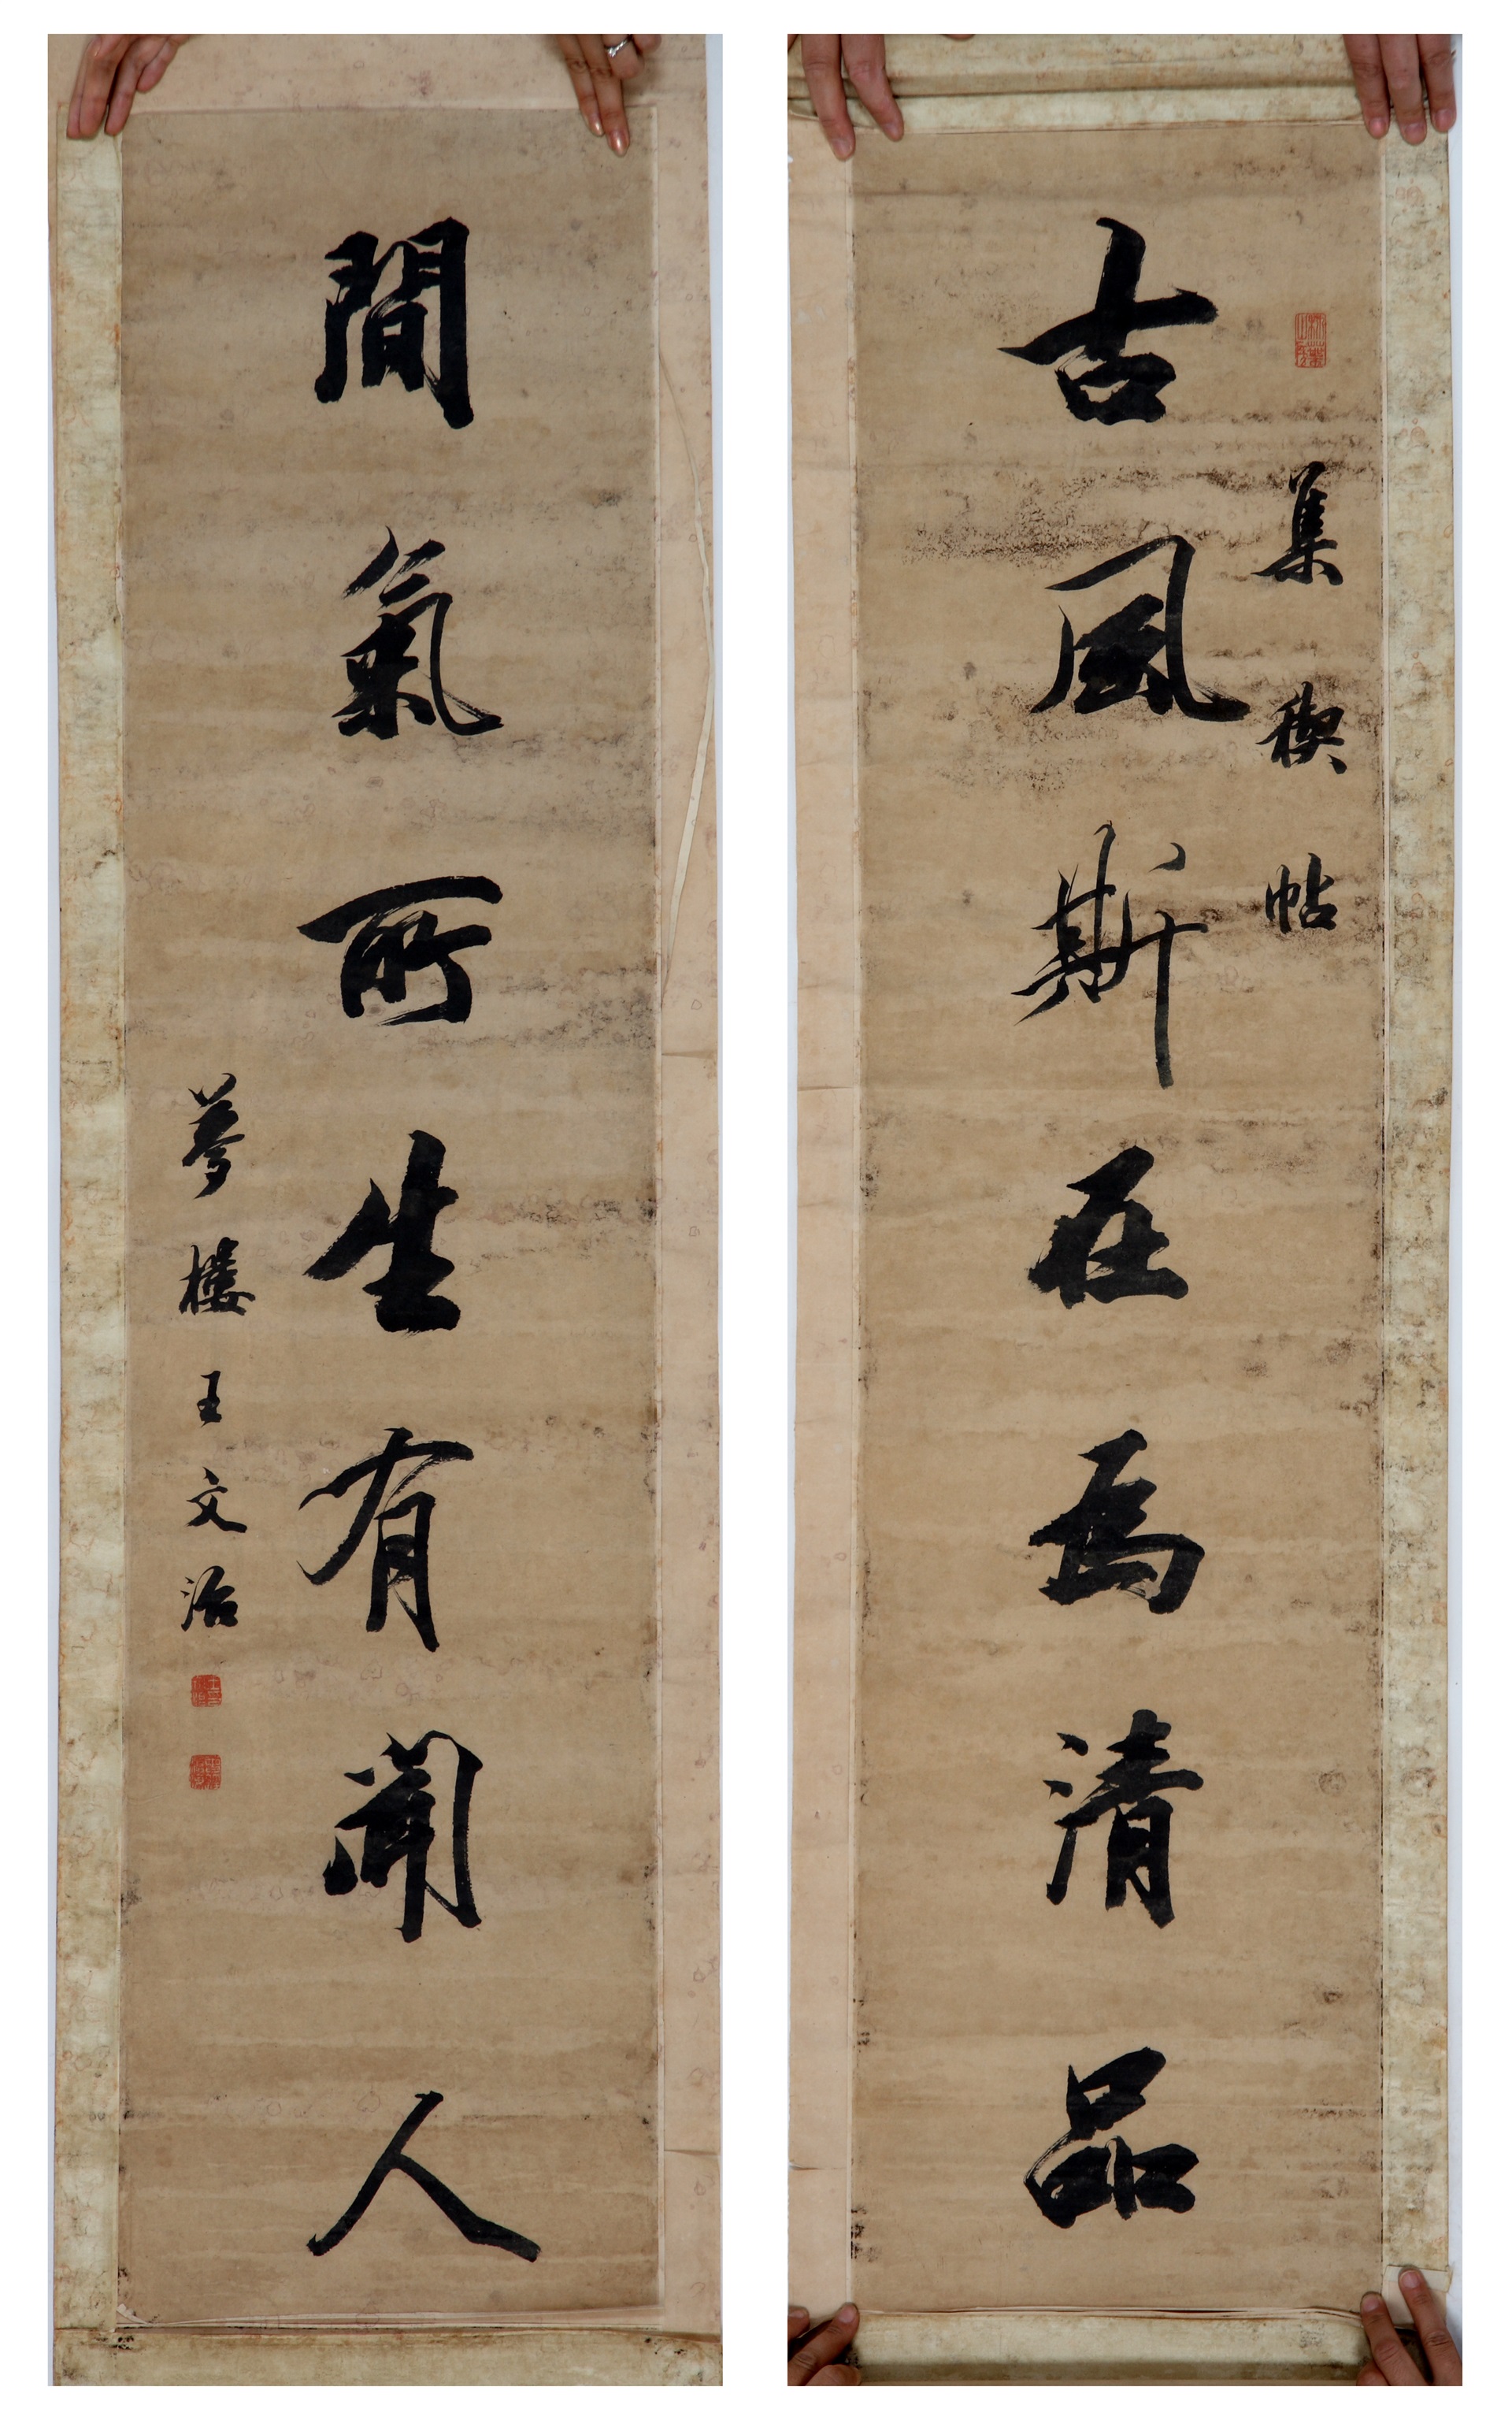 集稧帖
古風斯在為清品
間氣所生有聞人
夢樓王文治